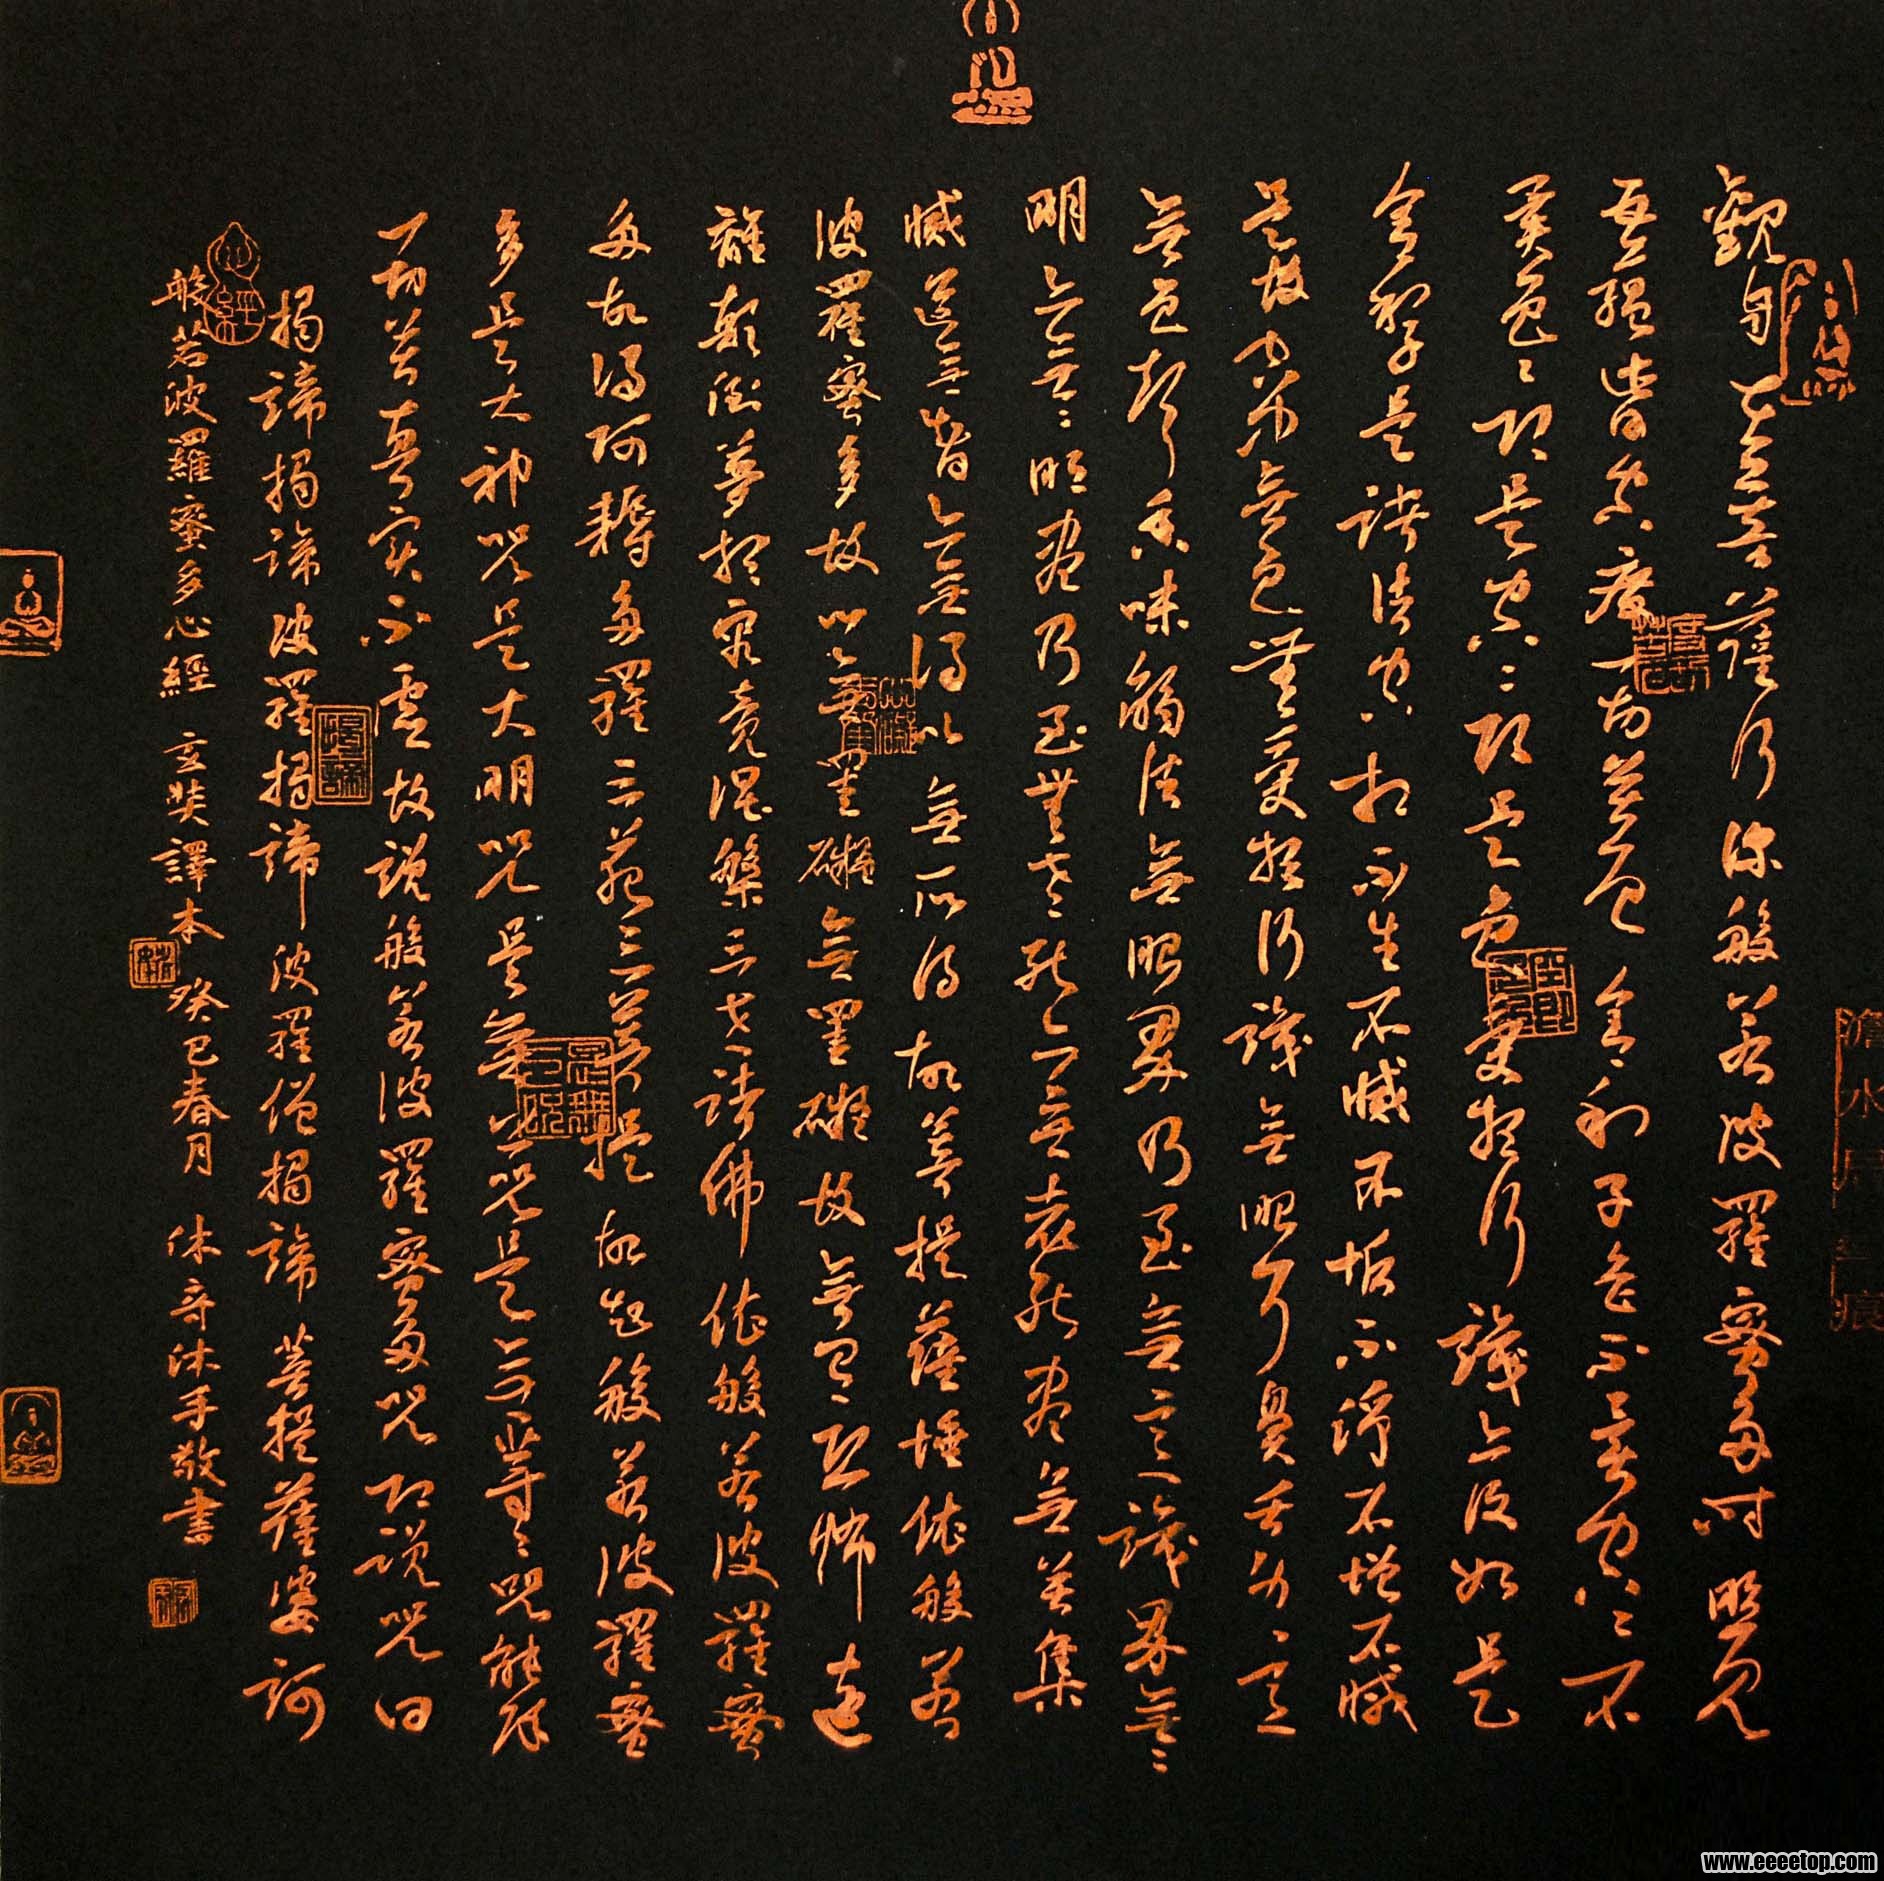 觀自在菩薩行深般若波羅蜜多時照見
五蘊皆空度一切苦厄舍利子色不異空〻不
異色〻即是空〻即是色受想行識亦復如是
舍利子是諸法空相不生不滅不垢不淨不增不減
是故空中無色無受想行識無眼耳鼻舌身意
無色聲香味觸法無眼界乃至無意識界無〻
明亦無〻明盡乃至無老死亦無老死盡無苦集
滅道無智亦無得以無所得故菩提薩埵依般若
波羅蜜多故心無罣礙無罣礙故無有恐怖遠
離顛倒夢想究竟涅槃三世諸佛依般若波羅蜜
多故得阿耨多羅三藐三菩提故知般若波羅蜜
多是大神咒是大明咒是無上咒是無等〻咒能除
一切苦真實不虛故說般若波羅蜜多咒即說咒曰
揭諦揭諦波羅揭諦波羅僧揭諦菩提薩婆訶
般若波羅蜜多心經 玄奘譯本 癸巳春月 休奇沐手敬書
www.eeeetop.com